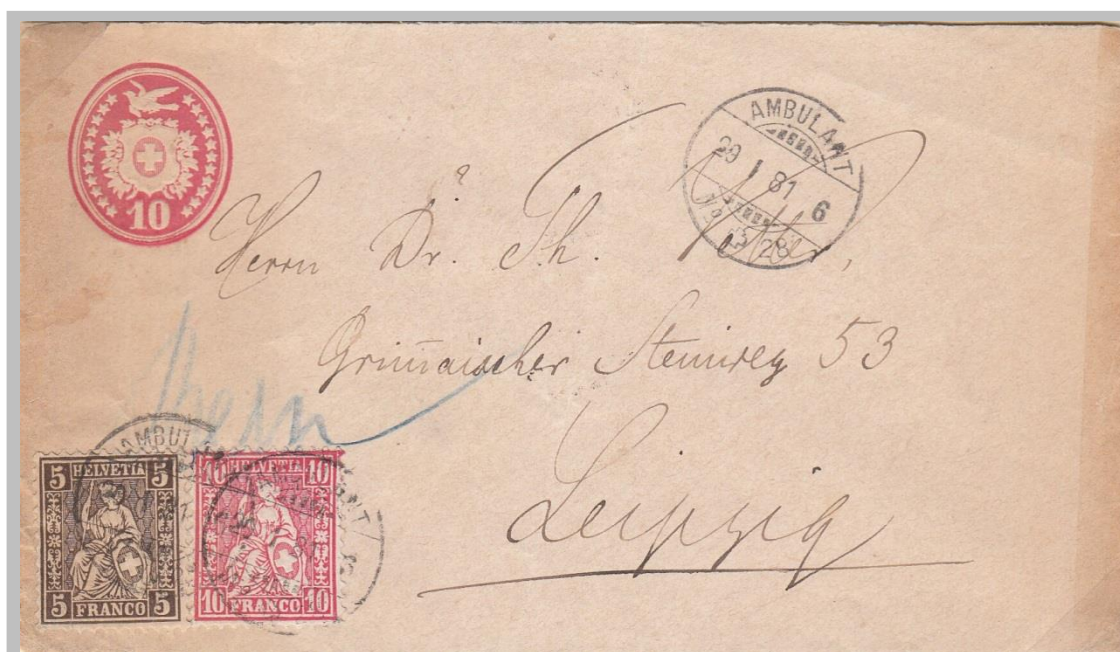 10
AMBULANT
29 I 81 6
No 28
Herrn Dr. Th.
Grim̄aischer Steinweg 53
Leipzig
Bern
AMBULANT
5 HELVETIA 5
5 FRANCO 5
10 HELVETIA 10
10 FRANCO 10